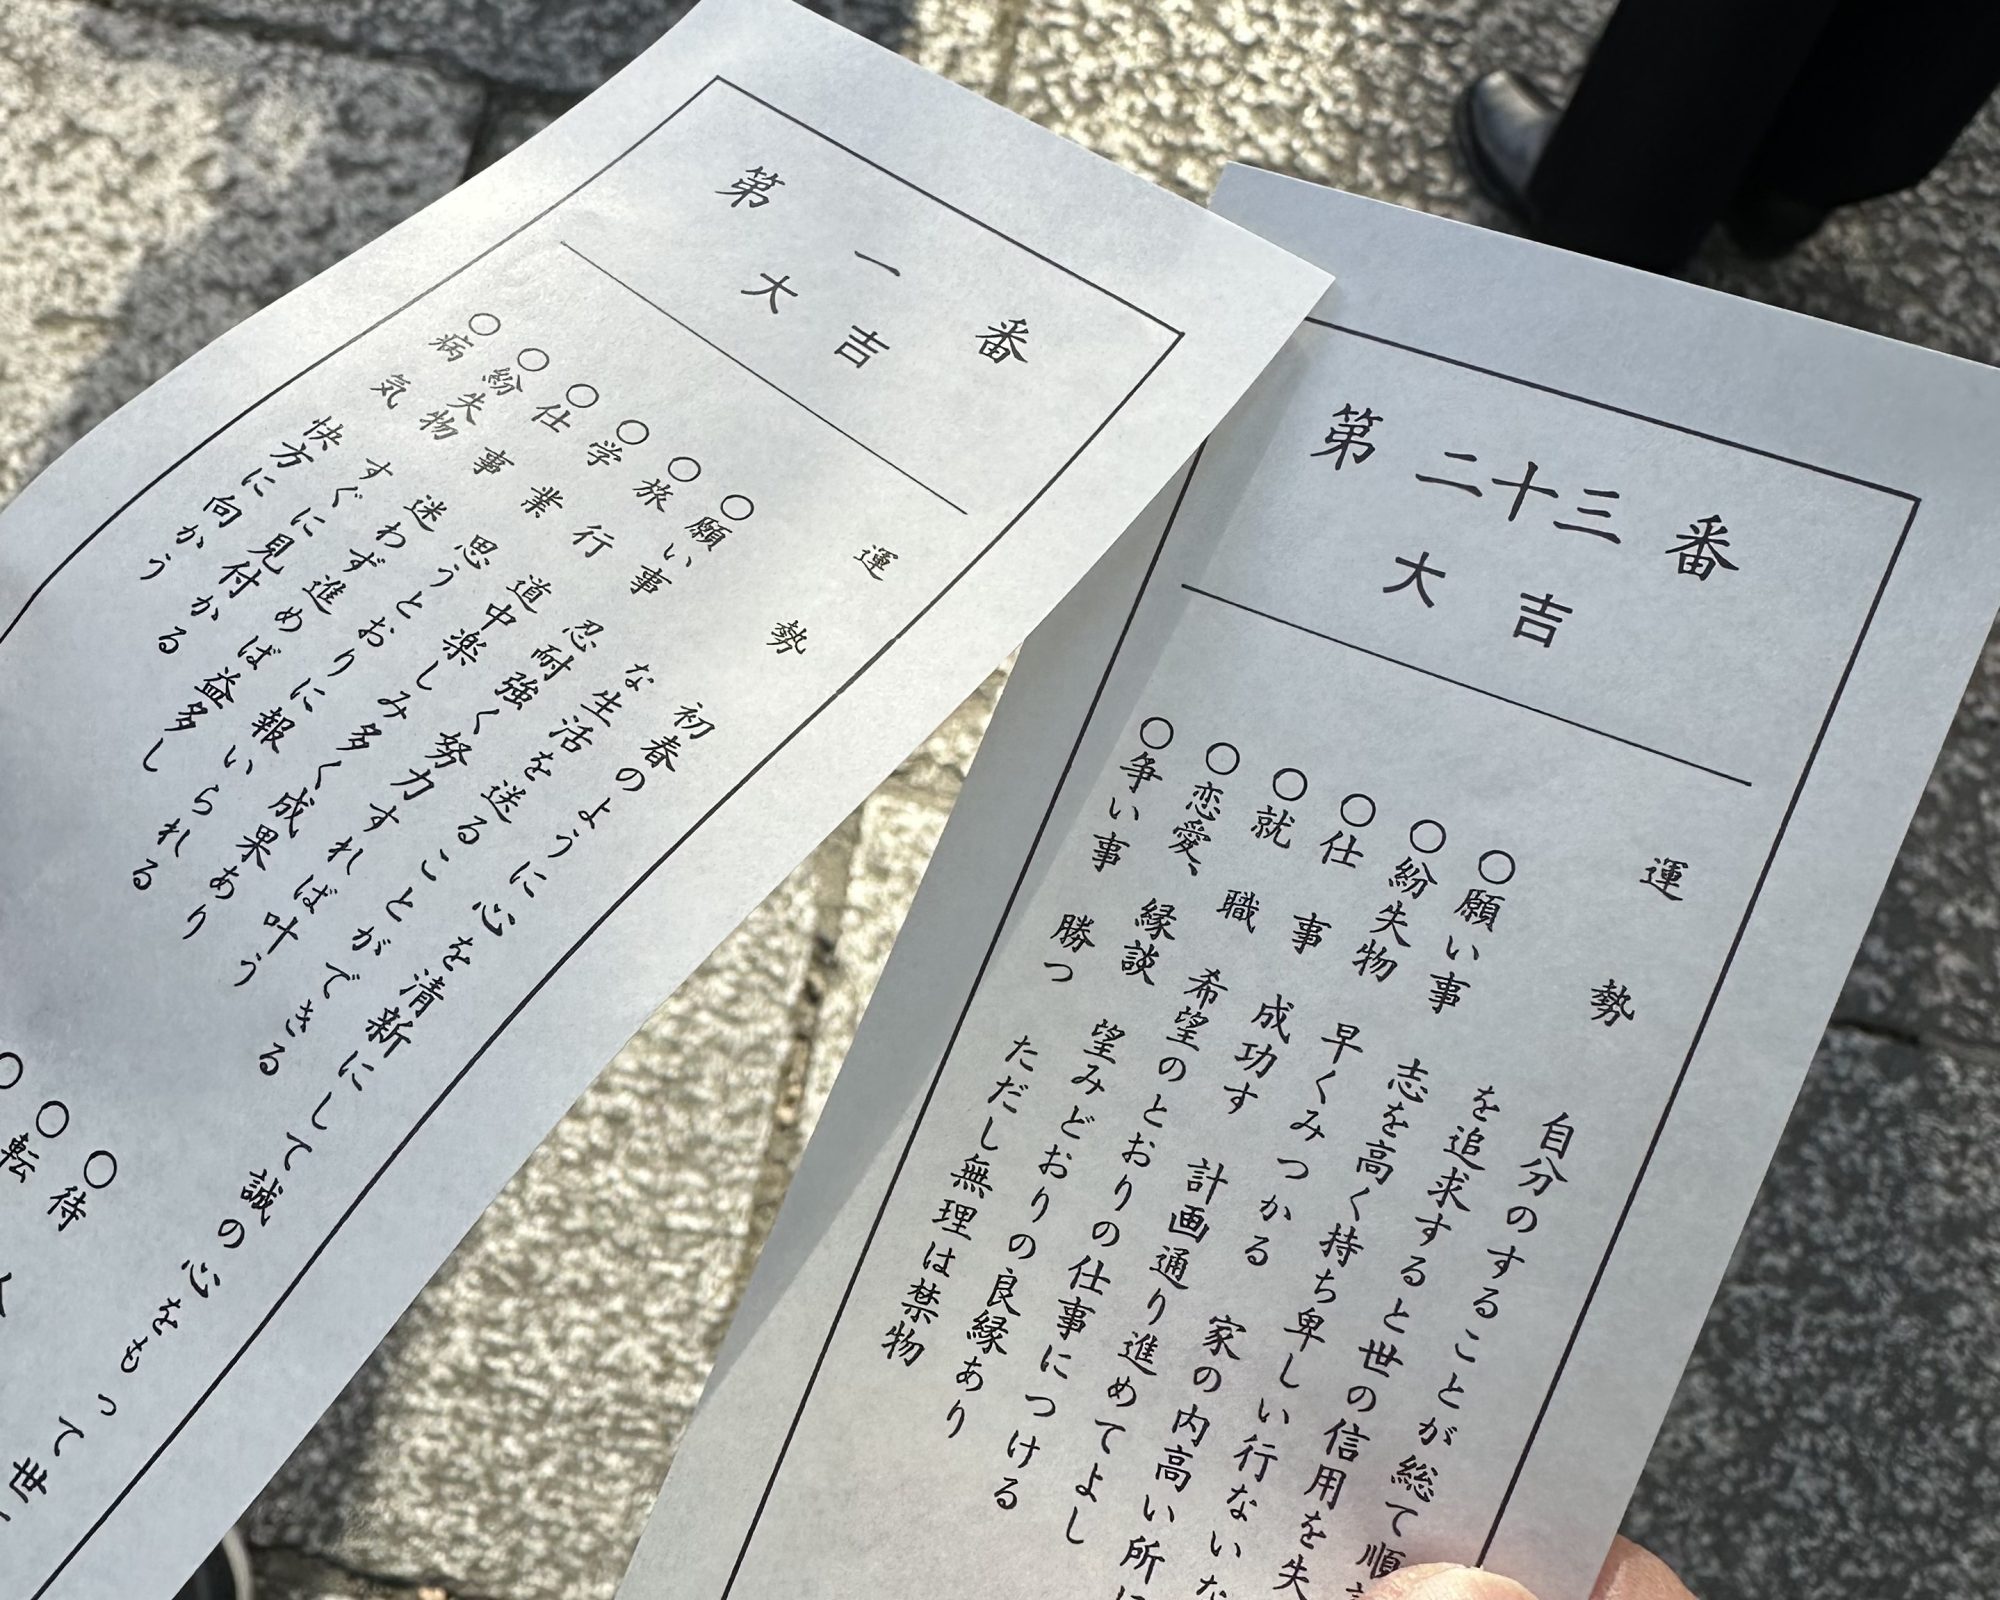 第一番
大吉
運勢
初春のように心を清新にして誠の心をもって世
な生活を送ることができる
○願い事 忍耐強く努力すれば叶う
○旅行 道中楽しみ多く成果あり
○学業 思うとおりに報いられる
○仕事 迷わず進めば益多し
○紛失物 すぐに見付かる
○病気 快方に向かう
○待
○転
○
第二十三番
大吉
運勢
自分のすることが総て順
を追求すると世の信用を失
○願い事 志を高く持ち卑しい行ないな
○紛失物 早くみつかる 家の内高い所に
○仕事 成功す 計画通り進めてよし
○就職 希望のとおりの仕事につける
○恋愛、縁談 望みどおりの良縁あり
ただし無理は禁物
○争い事 勝つ